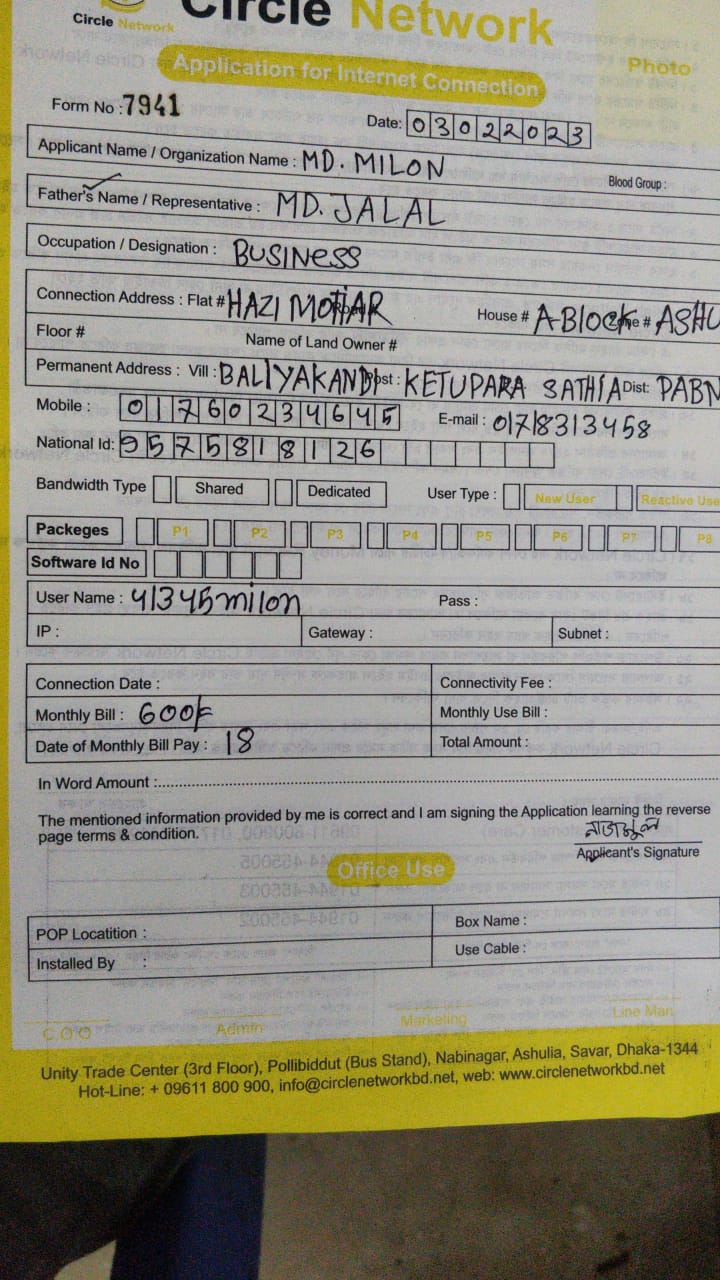 Circle Network
Circle Network
Application for Internet Connection
Photo
Form No : 7941
Date: 03022023
Applicant Name / Organization Name : MD. MILON
Blood Group :
Father's Name / Representative : MD. JALAL
Occupation / Designation : BUSINESS
Connection Address : Flat # HAZI MOTIAR House # A BLOCK # ASHU
Floor # Name of Land Owner #
Permanent Address : Vill : BALIYAKANDI Post : KETUPARA SATHIA Dist: PABN
Mobile : 01760234645 E-mail : 01718313458
National Id: 9575818126
Bandwidth Type Shared Dedicated User Type : New User Reactive Use
Packeges P1 P2 P3 P4 P5 P6 P7 P8
Software Id No
User Name : 41345milon Pass :
IP : Gateway : Subnet :
Connection Date : Connectivity Fee :
Monthly Bill : 600/= Monthly Use Bill :
Date of Monthly Bill Pay : 18 Total Amount :
In Word Amount :
The mentioned information provided by me is correct and I am signing the Application learning the reverse
page terms & condition.
Applicant's Signature
Office Use
POP Locatition : Box Name :
Installed By : Use Cable :
C O O Admin Marketing Line Man
Unity Trade Center (3rd Floor), Pollibiddut (Bus Stand), Nabinagar, Ashulia, Savar, Dhaka-1344
Hot-Line: + 09611 800 900, info@circlenetworkbd.net, web: www.circlenetworkbd.net